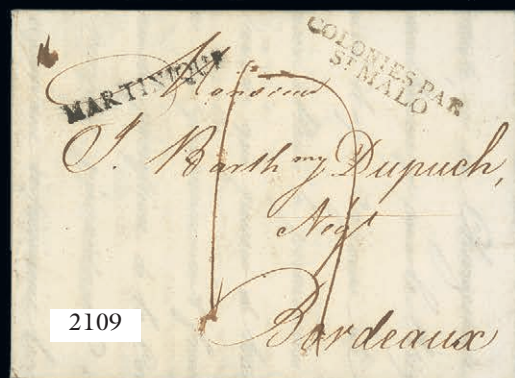 COLONIES PAR
ST MALO
MARTINIQUE
Monsieur
J. Barth my Dupuch,
Negt
Bordeaux
2109